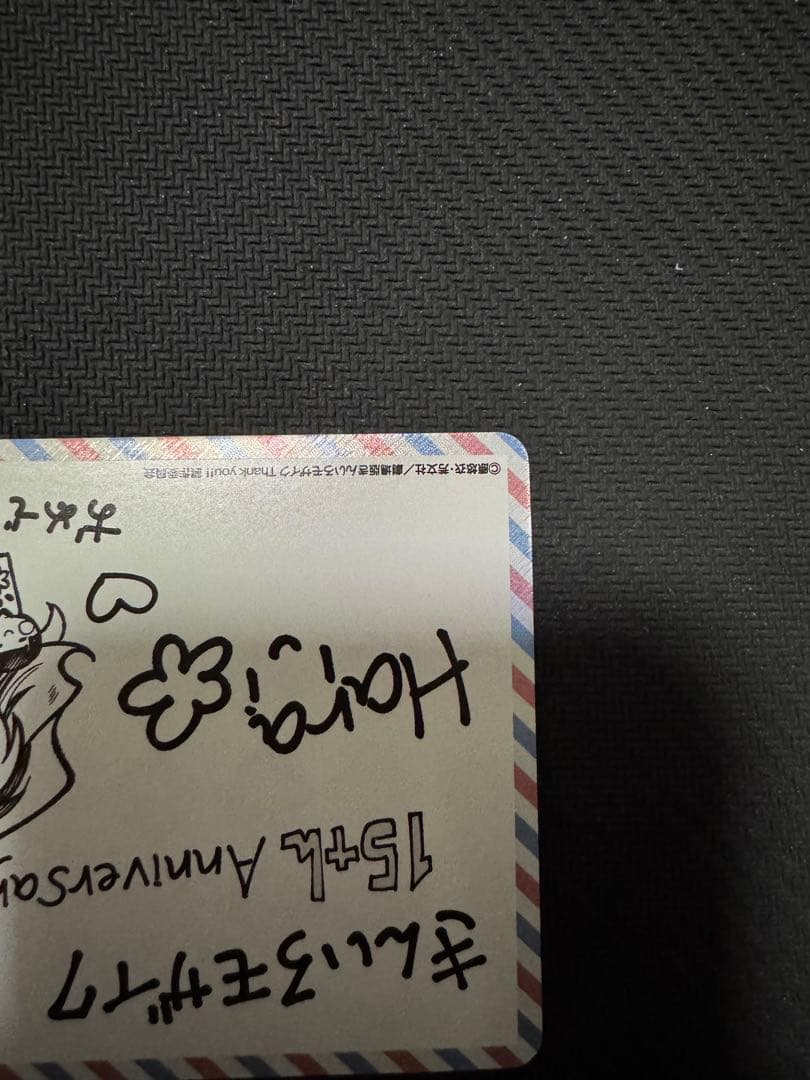 きんいろモザイク
15th Anniversar
Hara
おめで
©原悠衣・芳文社／劇場版きんいろモザイク Thank you!! 製作委員会